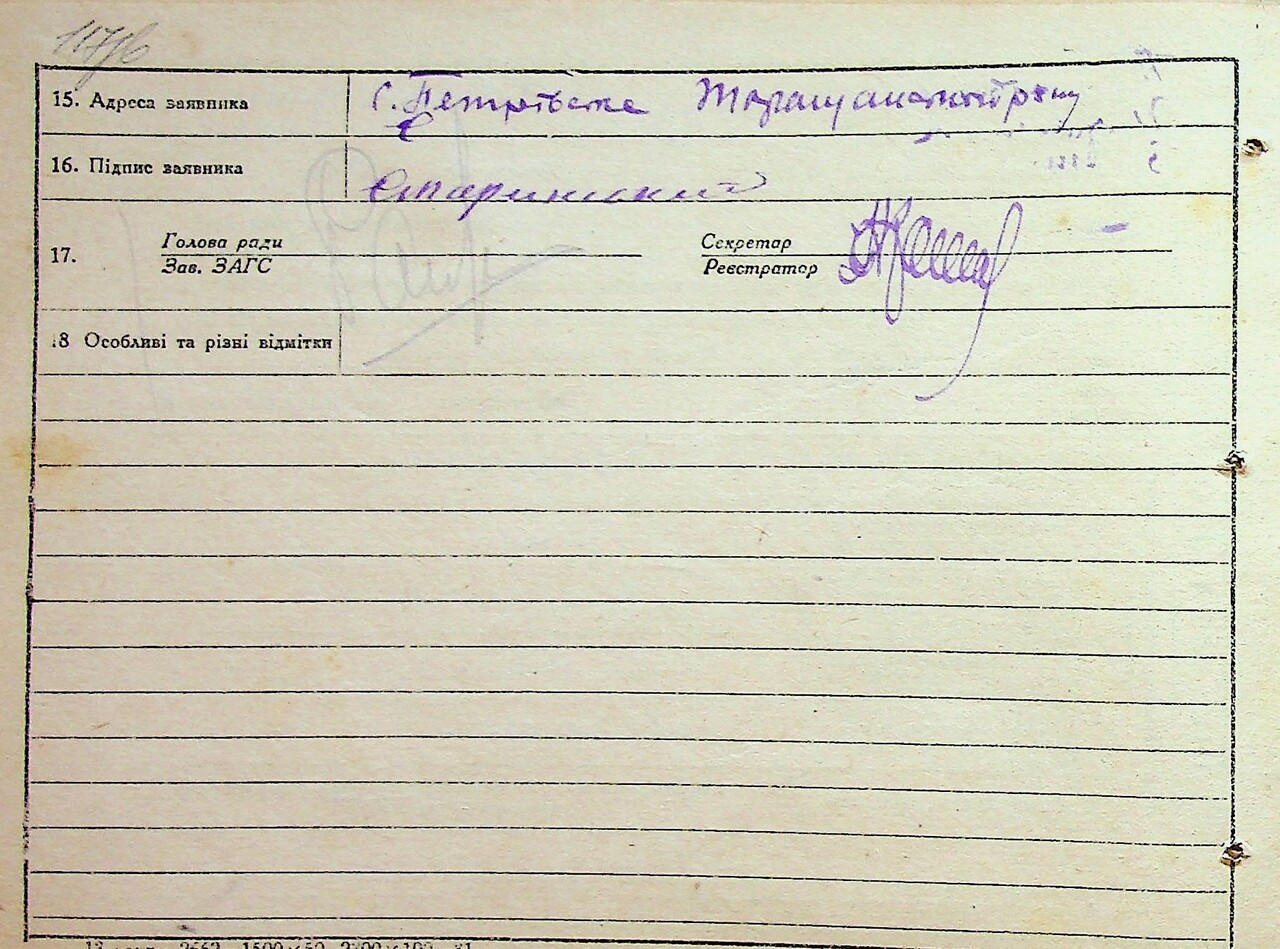 117/6
15. Адреса заявника с. Петрівське Таращанського р-ну
16. Підпис заявника Старинський
17. Голова ради Секретар
Зав. ЗАГС Реєстратор
18 Особливі та різні відмітки